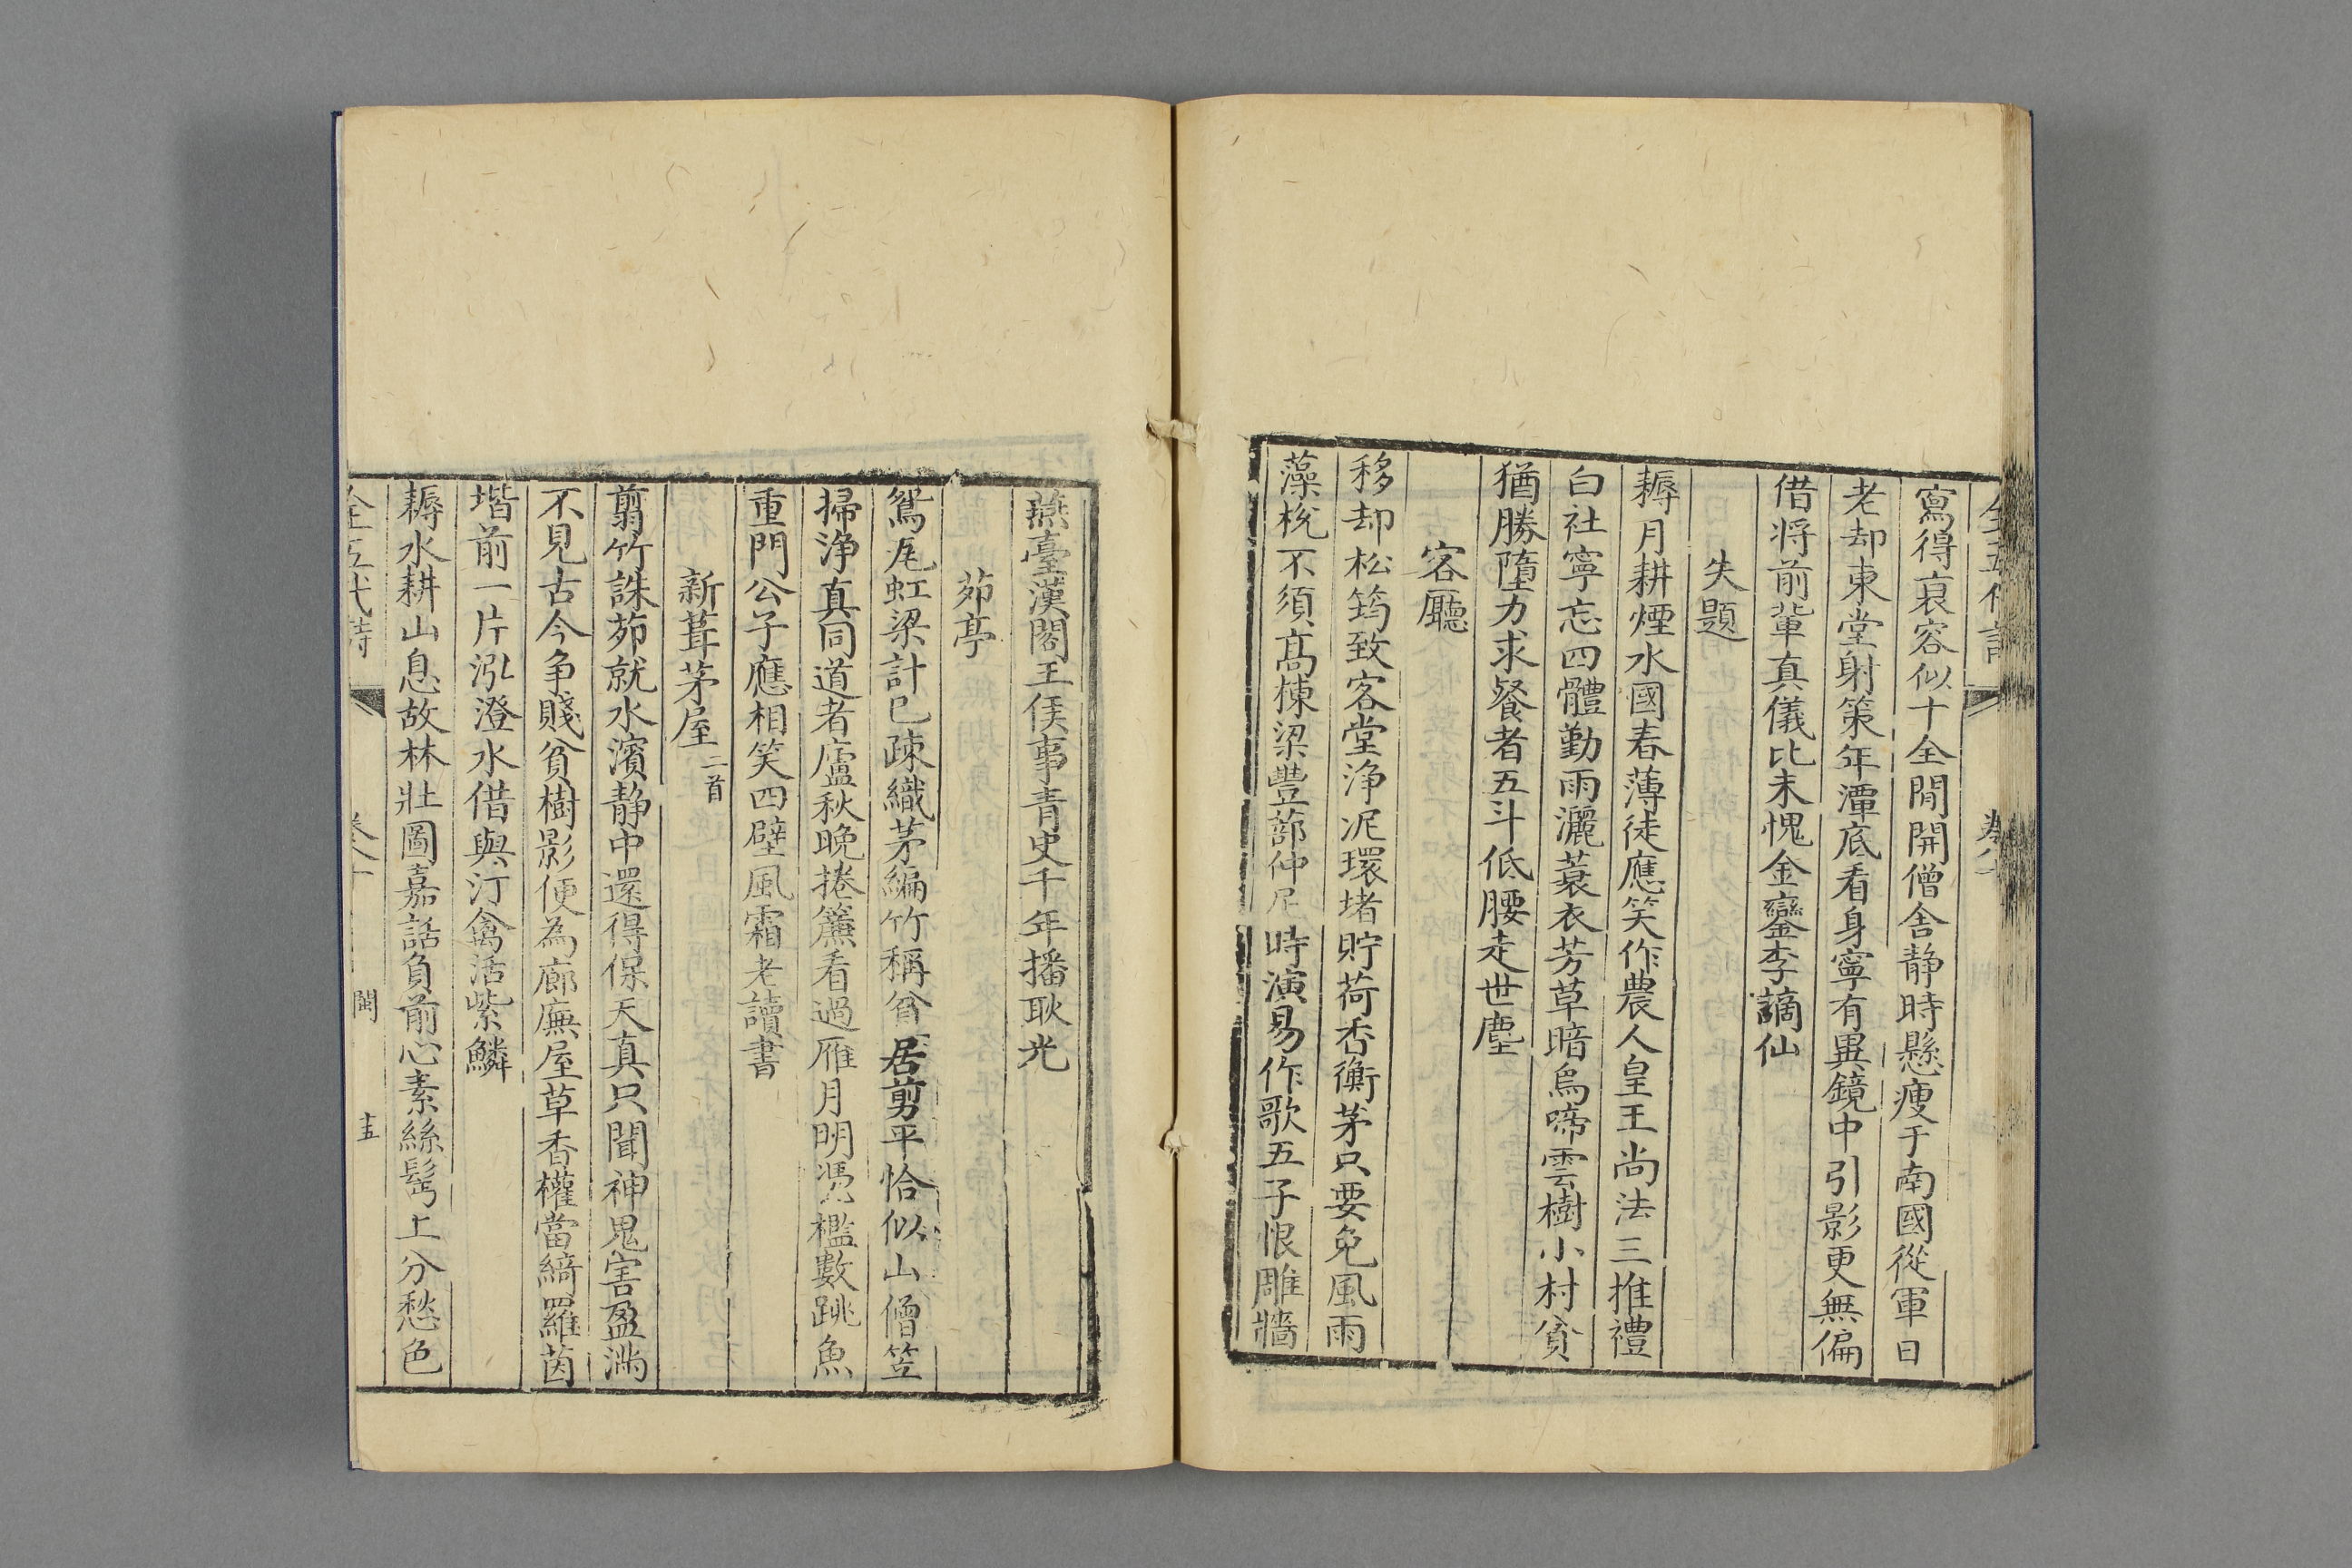 全五代詩
寫得衰容似十全閒開僧舍静時懸瘦于南國從軍日
老却東堂射策年潭底看身寧有異鏡中引影更無偏
借将前輩真儀比未愧金鑾李謫仙
失題
耨月耕煙水國春薄徒應笑作農人皇王尚法三推禮
白社寧忘四體勤雨灑蓑衣芳草暗鳥啼雲樹小村貧
猶勝墮力求餐者五斗低腰走世塵
客廳
移却松筠致客堂浄泥環堵貯荷香衡茅只要免風雨
藻梲不須髙棟梁豐蔀仲尼時演易作歌五子恨雕牆
燕臺漢閣王侯事青史千年播耿光
茆亭
鴛瓦虹梁計已疎織茅編竹稱貧居剪平恰似山僧笠
掃浄真同道者廬秋晚捲簾看過雁月明凴檻數跳魚
重門公子應相笑四壁風霜老讀書
新葺茅屋二首
翦竹誅茆就水濱静中還得保天真只聞神鬼害盈滿
不見古今争賤貧樹影便為廊廡屋草香權當綺羅茵
堦前一片泓澄水借與汀禽活紫鱗
耨水耕山息故林壯圖嘉話負前心素絲髩上分愁色
全五代詩
閩
十五